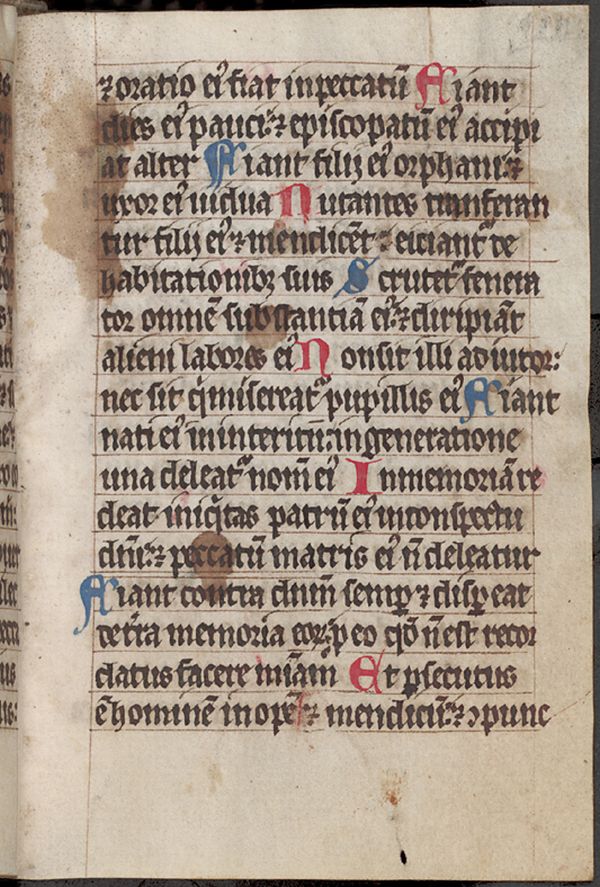 ⁊ oratio eiꝰ fiat in peccatū Fiant
dies eiꝰ pauci: ⁊ episcopatū eiꝰ accipi
at alter Fiant filij eiꝰ orphani: ⁊
uxor eiꝰ uidua Nutantes transferan
tur filij eiꝰ ⁊ mendicēt ⁊ eiciantᷣ de
habitationibꝫ suis Scrutetᷣ fenera
tor omnē substantiā eiꝰ: ⁊ diripiāt
alieni labores eiꝰ Non sit illi adiutor:
nec sit qͥ misereatᷣ pupillis eiꝰ Fiant
nati eiꝰ in interitū: in generatione
una deleatᷣ nomē eiꝰ In memoriā re
deat iniqͥtas patrū eiꝰ in conspectu
dñi: ⁊ peccatū matris eiꝰ ñ deleatur
Fiant contra dñm semꝑ ⁊ disꝑeat
de terra memoria eoꝝ: ꝓ eo qͦd ñ est recor
datus facere mīam Et ꝑsecutus
ē hominē inopē ⁊ mendicū: ⁊ ꝯpunc